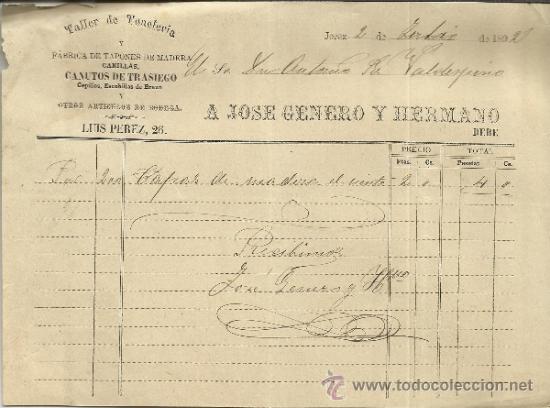 Taller de Toneleria
Y
FÁBRICA DE TAPONES DE MADERA
CANILLAS,
CANUTOS DE TRASIEGO
Cepillos, Escobillas de Brezo
Y
OTROS ARTICULOS DE BODEGA.
LUIS PEREZ, 26.
Jerez 2 de Julio de 189
El Sr. Dn Antonio R. Valdespino
A JOSE GENERO Y HERMANO
DEBE
PRECIO TOTAL
Ptas. Cs. Pesetas Cs.
Por 200 Tapones de madera el ciento 2 0 4 0
Recibimos
José Genero y Hno
todocoleccion
www.todocoleccion.net